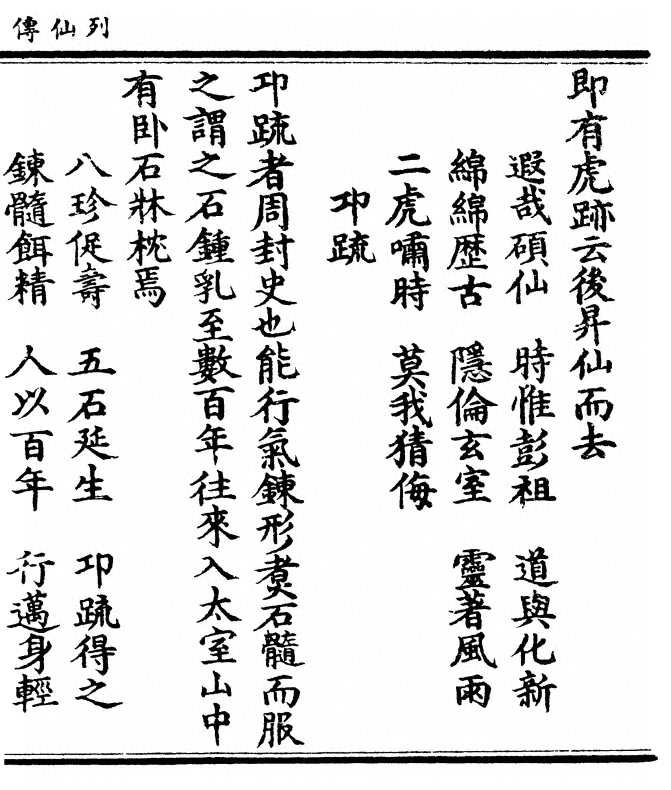 列仙傳
即有虎跡云後昇仙而去
遐哉碩仙 時惟彭祖 道與化新
綿綿歷古 隱倫玄室 靈著風雨
二虎嘯時 莫我猜侮
卭疏
卭疏者周封史也能行氣鍊形煑石髓而服
之謂之石鍾乳至數百年往來入太室山中
有卧石牀枕焉
八珍促壽 五石延生 卭疏得之
鍊髓餌精 人以百年 行邁身輕